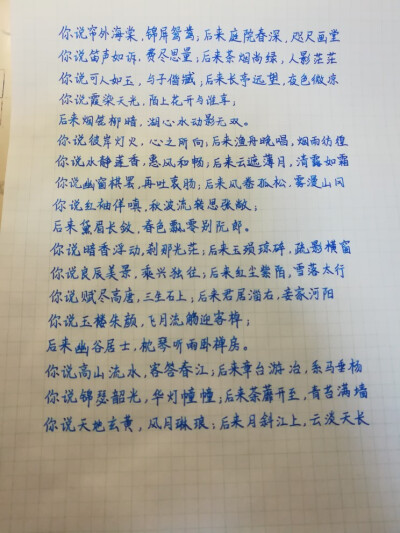 你说帘外海棠,锦屏鸳鸯;后来庭院春深,咫尺画堂
你说笛声如诉,费尽思量;后来茶烟尚绿,人影茫茫
你说可人如玉,与子偕臧;后来长亭远望,夜色微凉
你说霞染天光,陌上花开与谁享;
后来烟笼柳暗,湖心水动影无双。
你说彼岸灯火,心之所向;后来渔舟晚唱,烟雨彷徨
你说水静莲香,惠风和畅;后来云遮薄月,清露如霜
你说幽窗棋罢,再吐衷肠;后来风卷孤松,雾漫山冈
你说红袖佯嗔,秋波流转思张敞;
后来黛眉长敛,春色飘零别阮郎。
你说暗香浮动,刹那光茫;后来玉殒琼碎,疏影横窗
你说良辰美景,乘兴独往;后来红尘紫陌,雪落太行
你说赋尽高唐,三生石上;后来君居淄右,妾家河阳
你说玉楼朱颜,飞月流觞迎客棹;
后来幽谷居士,枕琴听雨卧禅房。
你说高山流水,客答春江;后来章台游冶,系马垂杨
你说锦瑟韶光,华灯幢幢;后来荼蘼开至,青苔满墙
你说天地玄黄,风月琳琅;后来月斜江上,云淡天长